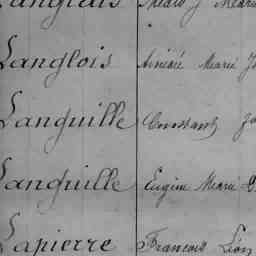 Langlois Amédée Marie
Languille Constant
Languille Eugène Marie
Lapierre François Léon